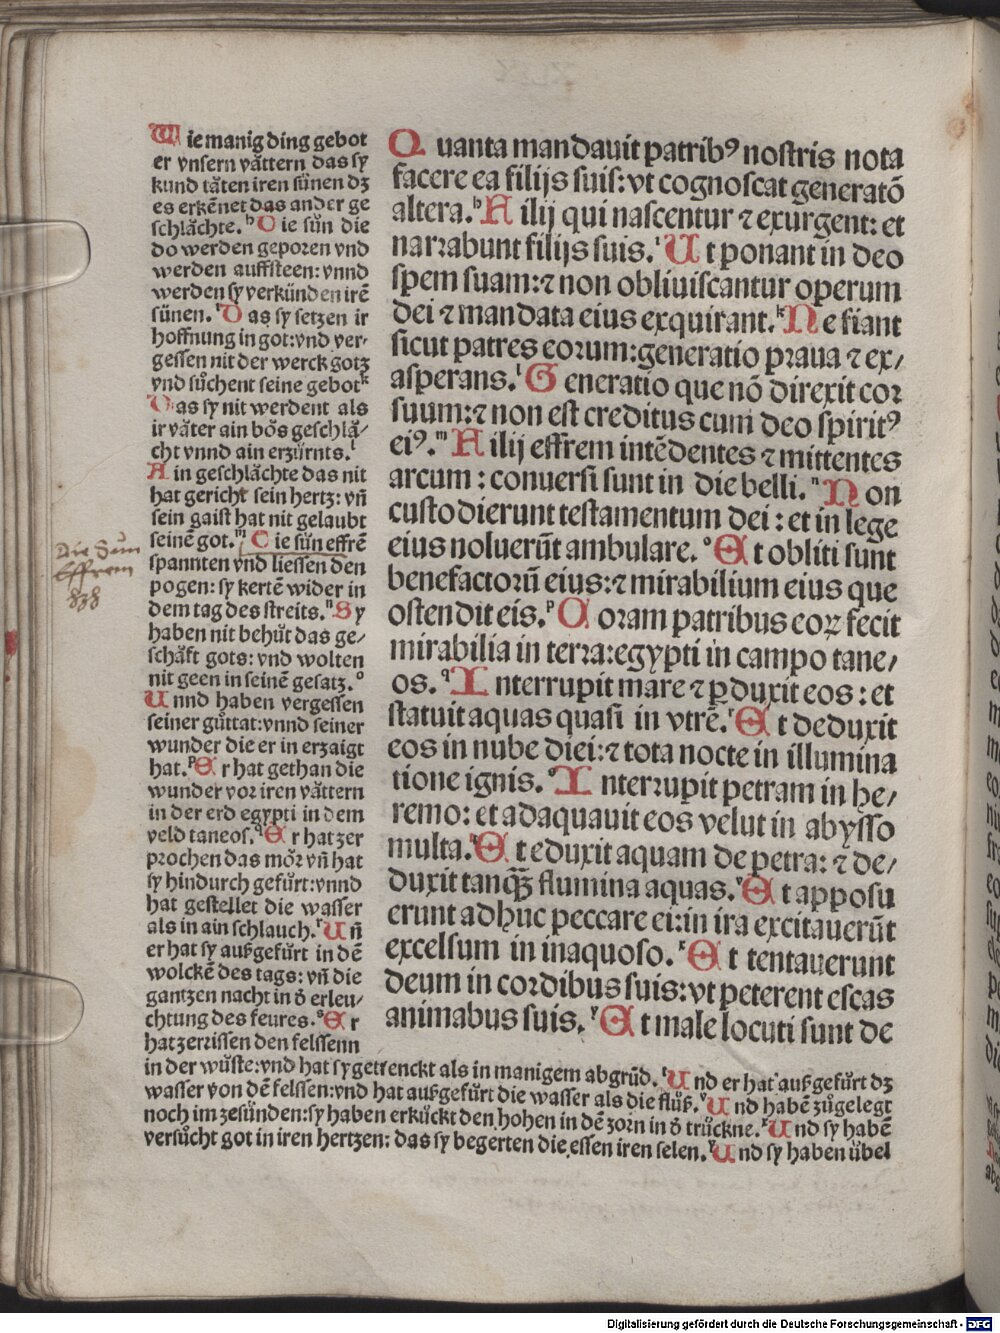 Wie manig ding gebot
er vnsern vättern das sy
kund täten iren sünen dz
es erkēnet das ander ge
schlächte. ʰDie sün die
do werden geporen vnd
werden auffsteen: vnnd
werden sy verkünden irē
sünen. ⁱDas sy setzen ir
hoffnung in got: vnd ver⸗
gessen nit der werck gotz
vnd süchent seine gebot ᵏ
Das sy nit werdent als
ir väter ain bös geschlä⸗
cht vnnd ain erzürnts. ˡ
Ain geschlächte das nit
hat gericht sein hertz: vn̄
sein gaist hat nit gelaubt
seinē got. ᵐDie sün effrē
spannten vnd liessen den
pogen: sy kertē wider in
dem tag des streits. ⁿSy
haben nit behüt das ge⸗
schäft gots: vnd wolten
nit geen in seinē gesatz. ᵒ
Unnd haben vergessen
seiner güttat: vnnd seiner
wunder die er in erzaigt
hat. ᵖEr hat gethan die
wunder vor iren vättern
in der erd egypti in dem
veld taneos. ᑫEr hat zer
prochen das mör vn̄ hat
sy hindurch gefürt: vnnd
hat gestellet die wasser
als in ain schlauch. ʳUn̄
er hat sy außgefürt in dē
wolckē des tags: vn̄ die
gantzen nacht in d̄ erleu⸗
chtung des feures. ˢEr
hat zerrissen den felssenn
in der wüste: vnd hat sy getrenckt als in manigem abgrūd. ᵗUnd er hat außgefürt dz
wasser von dē felssen: vnd hat außgefürt die wasser als die flüß. ᵛUnd habē zügelegt
noch im zesünden: sy haben erkückt den hohen in dē zorn in d̄ trückne. ˣUnd sy habē
versücht got in iren hertzen: das sy begerten die essen iren selen. ʸUnd sy haben übel
Die Sün
Effrem
838
Quanta mandauit patribꝰ nostris nota
facere ea filijs suis: vt cognoscat generatō
altera. ʰFilij qui nascentur ⁊ exurgent: et
narrabunt filijs suis. ⁱUt ponant in deo
spem suam: ⁊ non obliuiscantur operum
dei ⁊ mandata eius exquirant. ᵏNe fiant
sicut patres eorum: generatio praua ⁊ ex⸗
asperans. ˡGeneratio que nō direxit cor
suum: ⁊ non est creditus cum deo spiritꝰ
eiꝰ. ᵐFilij effrem intēdentes ⁊ mittentes
arcum: conuersi sunt in die belli. ⁿNon
custodierunt testamentum dei: et in lege
eius noluerūt ambulare. ᵒEt obliti sunt
benefactorū eius: ⁊ mirabilium eius que
ostendit eis. ᵖCoram patribus eoꝝ fecit
mirabilia in terra: egypti in campo tane⸗
os. ᑫInterrupit mare ⁊ ꝑduxit eos: et
statuit aquas quasi in vtrē. ʳEt deduxit
eos in nube diei: ⁊ tota nocte in illumina
tione ignis. ˢInterrupit petram in he⸗
remo: et adaquauit eos velut in abysso
multa. ᵗEt eduxit aquam de petra: ⁊ de⸗
duxit tanqȝ flumina aquas. ᵛEt apposu
erunt adhuc peccare ei: in ira excitauerūt
excelsum in inaquoso. ˣEt tentauerunt
deum in cordibus suis: vt peterent escas
animabus suis. ʸEt male locuti sunt de
Digitalisierung gefördert durch die Deutsche Forschungsgemeinschaft - DFG